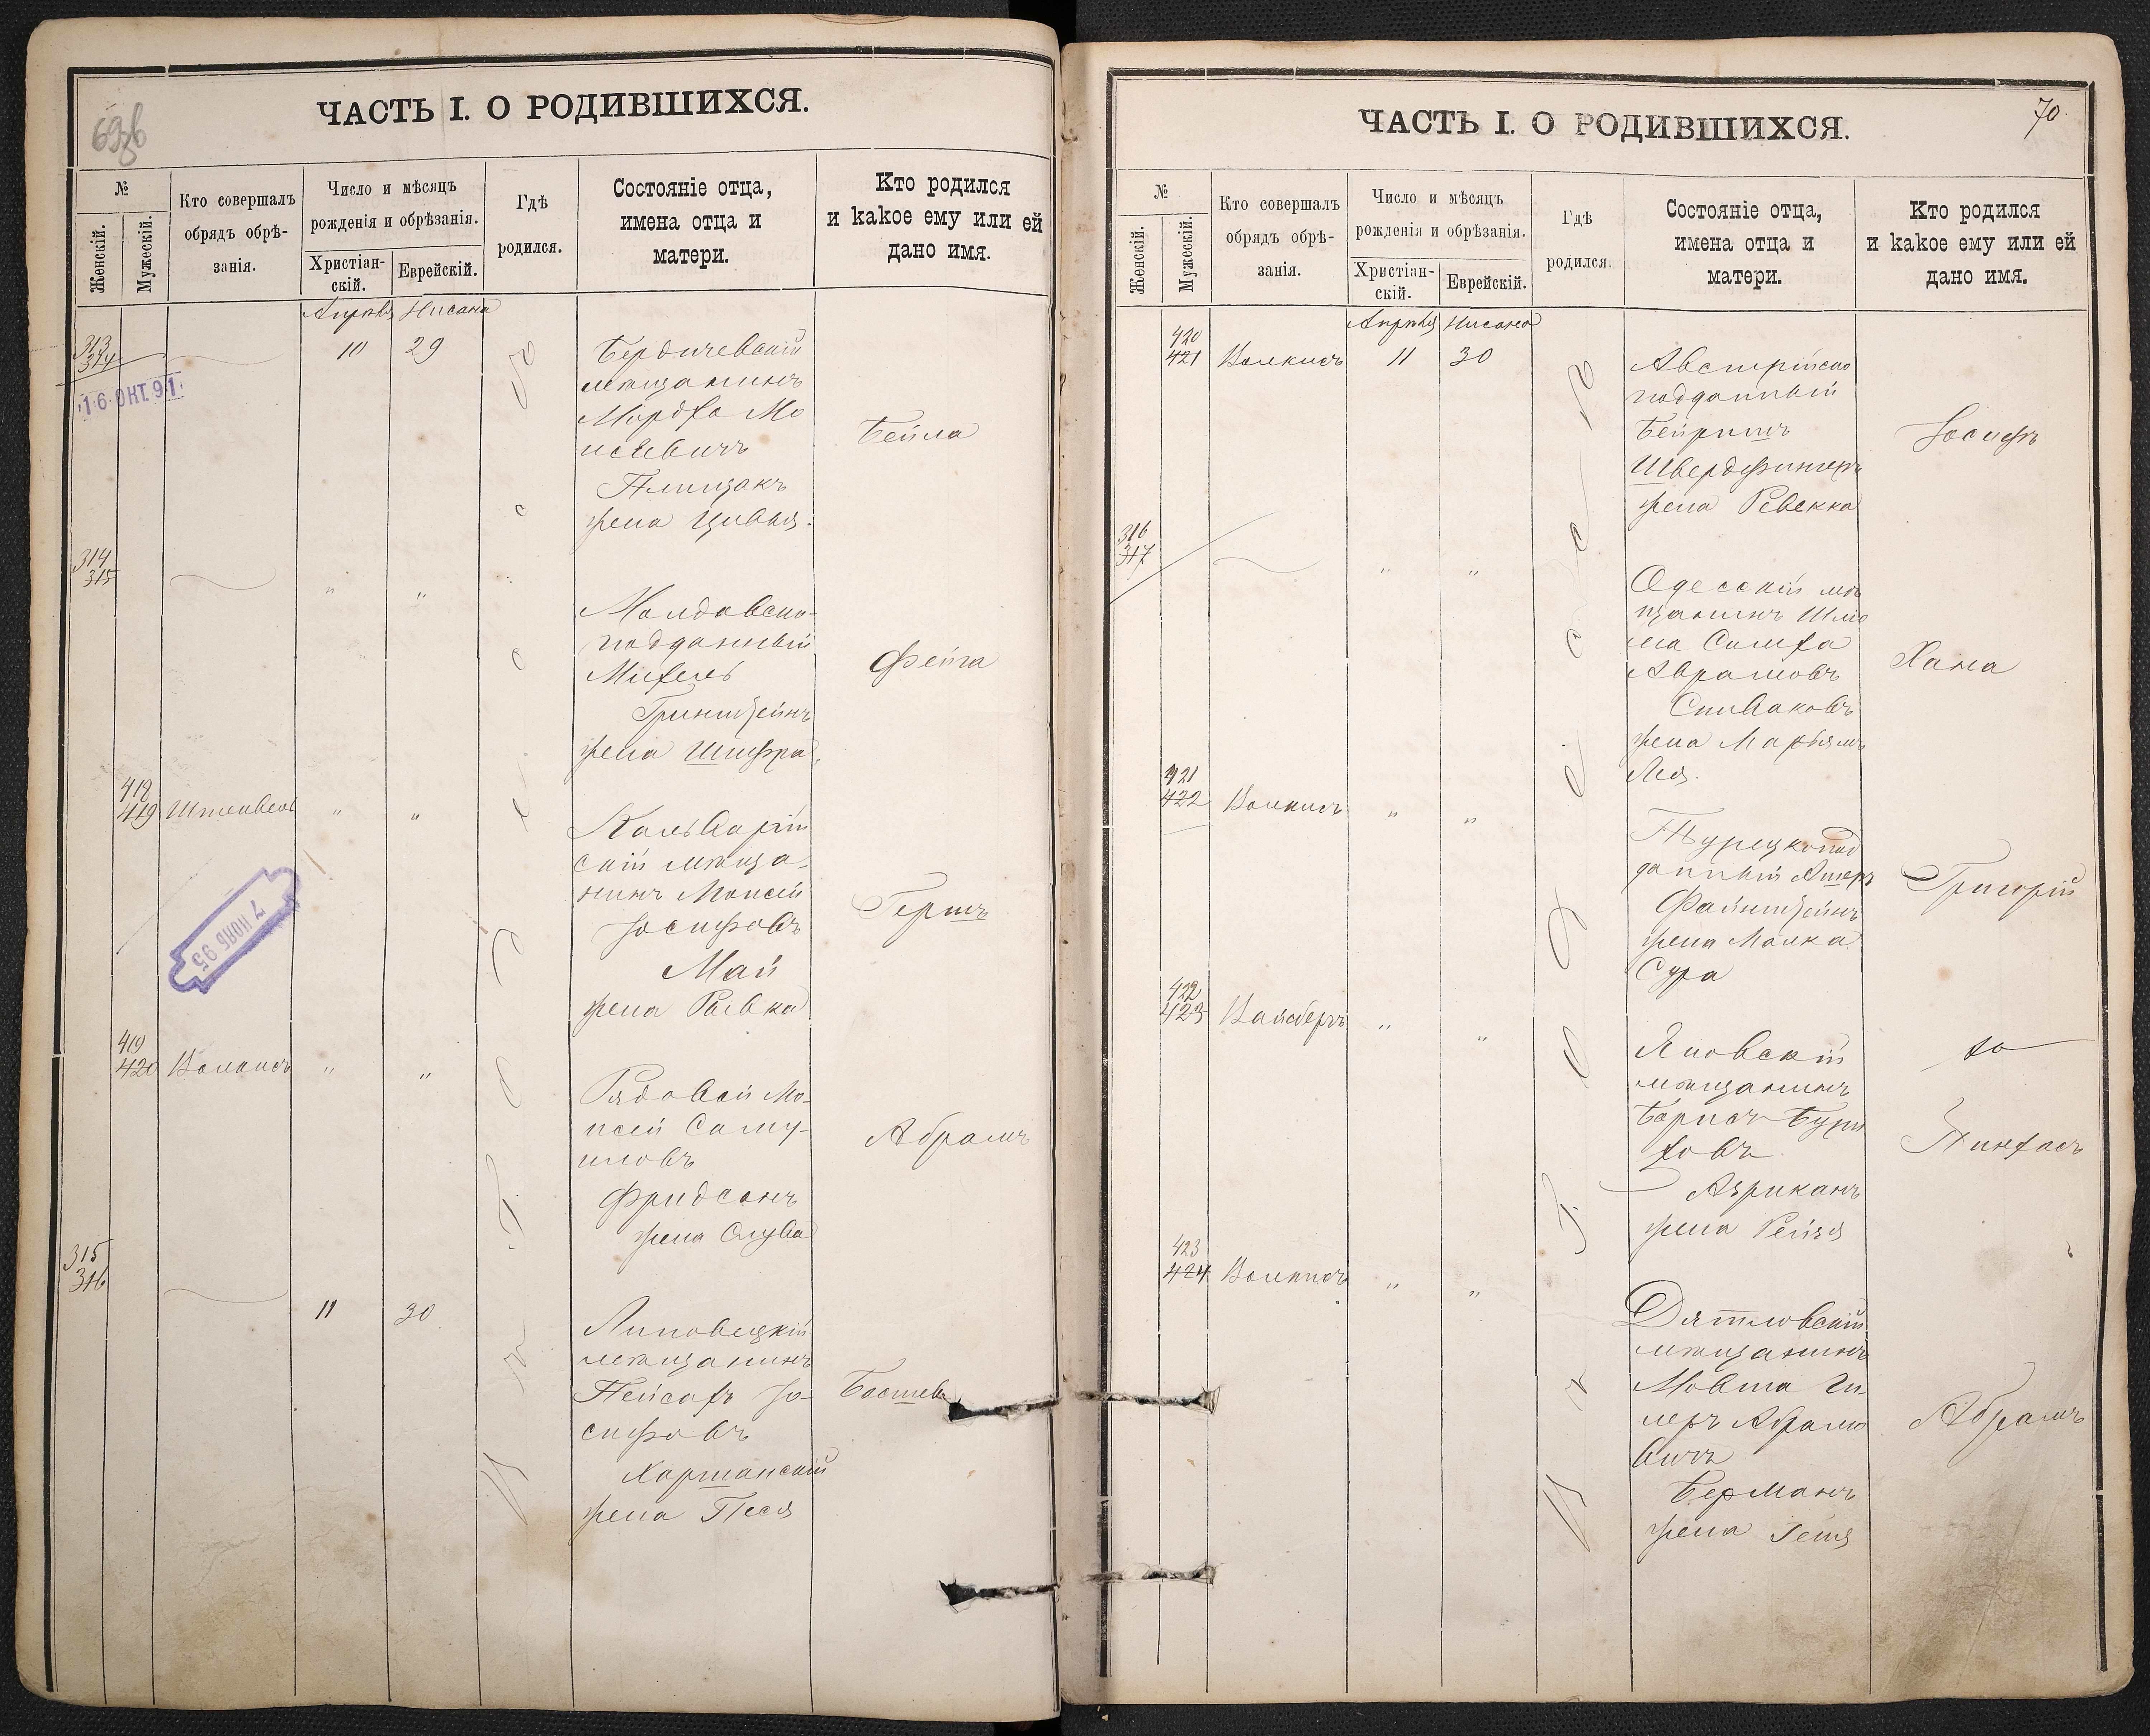 ЧАСТЬ I. О РОДИВШИХСЯ.
№
Женскій.
Мужескій.
Кто совершалъ
обрядъ обрѣ-
занія.
Число и мѣсяцъ
рожденія и обрѣзанія.
Христіан-
скій.
Еврейскій.
Гдѣ
родился.
Состояніе отца,
имена отца и
матери.
Кто родился
и какое ему или ей
дано имя.
Апрѣля Нисана
313
314
10 29
16 ОКТ. 91
Бердичевскій
мѣщанинъ
Мордко Мо
исѣевичъ
жена Цивья.
Бейла
314
315
" "
Молдавско-
подданный
Михель
Гринштейнъ
жена Шифра.
Фейга
418
419
" "
Кальварій
скій мѣща-
нинъ Моисей
Іосифовъ
Май
жена Ривка
Гершъ
7 НОЯБ 95
419
420
Волкисъ " "
Рядовой Мо-
исей Саму-
иловъ
Фридсонъ
жена Слува
Абрамъ
315
316
11 30
Липовецкій
мѣщанинъ
Пейсахъ Іо-
сифовъ
Харшанскій
жена Песя
Басшева
ЧАСТЬ I. О РОДИВШИХСЯ.
70.
№
Женскій.
Мужескій.
Кто совершалъ
обрядъ обрѣ-
занія.
Число и мѣсяцъ
рожденія и обрѣзанія.
Христіан-
скій.
Еврейскій.
Гдѣ
родился.
Состояніе отца,
имена отца и
матери.
Кто родился
и какое ему или ей
дано имя.
Апрѣля Нисана
420
421
Волкисъ 11 30
Австрійско
подданный
Бейришъ
Швердфингеръ
жена Ревекка
Іосифъ
316
317
" "
Одесскій мѣ
щанинъ Шлю
ма Симха
Аврамовъ
Спиваковъ
жена Марьямъ
Лея.
Хана
421
422
Волкисъ " "
Турецкопод
данный Ашеръ
Файнштейнъ
жена Малка
Сура
Григорій
422
423
Вайсберъ " "
Яновскій
мѣщанинъ
Борисъ Бури
ховъ
Азриканъ
жена Рейзя
Пинхасъ
423
424
Волкисъ " "
Дятловскій
мѣщанинъ
Мовша Ги-
леръ Абрамо
вичъ
Берманъ
жена Геня
Абрамъ